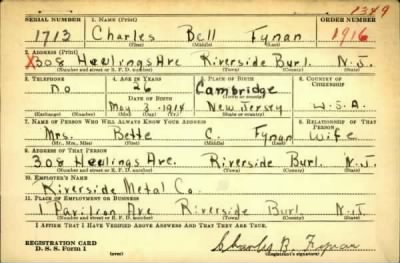 1349
SERIAL NUMBER 1. NAME (Print) ORDER NUMBER
1713 Charles Bell Fynan 1916
(First) (Middle) (Last)
2. ADDRESS (Print)
X308 Heulings Ave Riverside Burl. N.J.
(Number and street or R. F. D. number) (Town) (County) (State)
3. TELEPHONE 4. AGE IN YEARS 5. PLACE OF BIRTH 6. COUNTRY OF CITIZENSHIP
no 26 Cambridge
DATE OF BIRTH (Town or county)
May 3 1914 New Jersey U.S.A.
(Exchange) (Number) (Mo.) (Day) (Yr.) (State or country)
7. NAME OF PERSON WHO WILL ALWAYS KNOW YOUR ADDRESS 8. RELATIONSHIP OF THAT PERSON
Mrs. Bette C. Fynan Wife
(Mr., Mrs., Miss) (First) (Middle) (Last)
9. ADDRESS OF THAT PERSON
308 Heulings Ave. Riverside Burl. N.J.
(Number and street or R. F. D. number) (Town) (County) (State)
10. EMPLOYER'S NAME
Riverside Metal Co.
11. PLACE OF EMPLOYMENT OR BUSINESS
1 Pavilion Ave Riverside Burl. N.J.
(Number and street or R. F. D. number) (Town) (County) (State)
I AFFIRM THAT I HAVE VERIFIED ABOVE ANSWERS AND THAT THEY ARE TRUE.
REGISTRATION CARD
D. S. S. Form 1
Charles B. Fynan
(Registrant's signature)